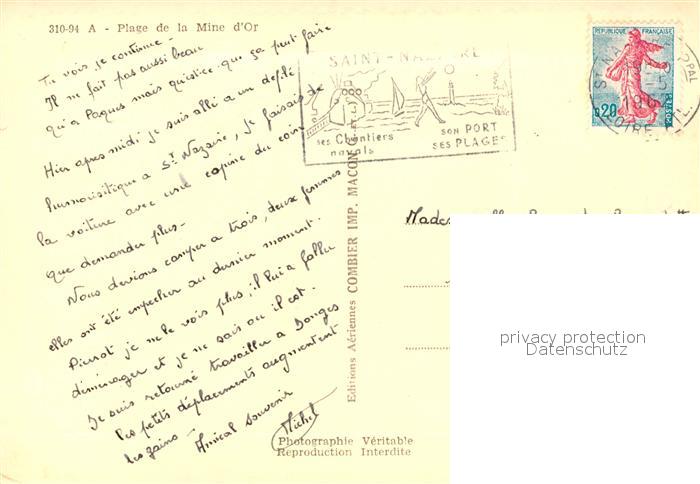 310-94 A - Plage de la Mine d'Or
Tu vois je continue -
Il ne fait pas aussi beau
qu'a Paques mais qu'est-ce que ça peut faire
Hier apres midi je suis allé a un defilé
humouristique a St Nazaire, je faisais de
la voiture avec une copine du coin
que demander plus -
Nous devions camper a trois, deux femmes
elles ont été empecher au dernier moment.
Pierrot je ne le vois plus, il lui a fallu
déménager et je ne sais ou il est.
Je suis retourné travailler a Donges
les petits déplacements augmentent
les gains -
Amical Souvenir
Michel
SAINT-NAZAIRE
ses Chantiers
navals
SON PORT
SES PLAGES
REPUBLIQUE FRANÇAISE
0,20
POSTES
Editions Aériennes COMBIER IMP. MACON
Photographie Véritable
Reproduction Interdite
privacy protection
Datenschutz